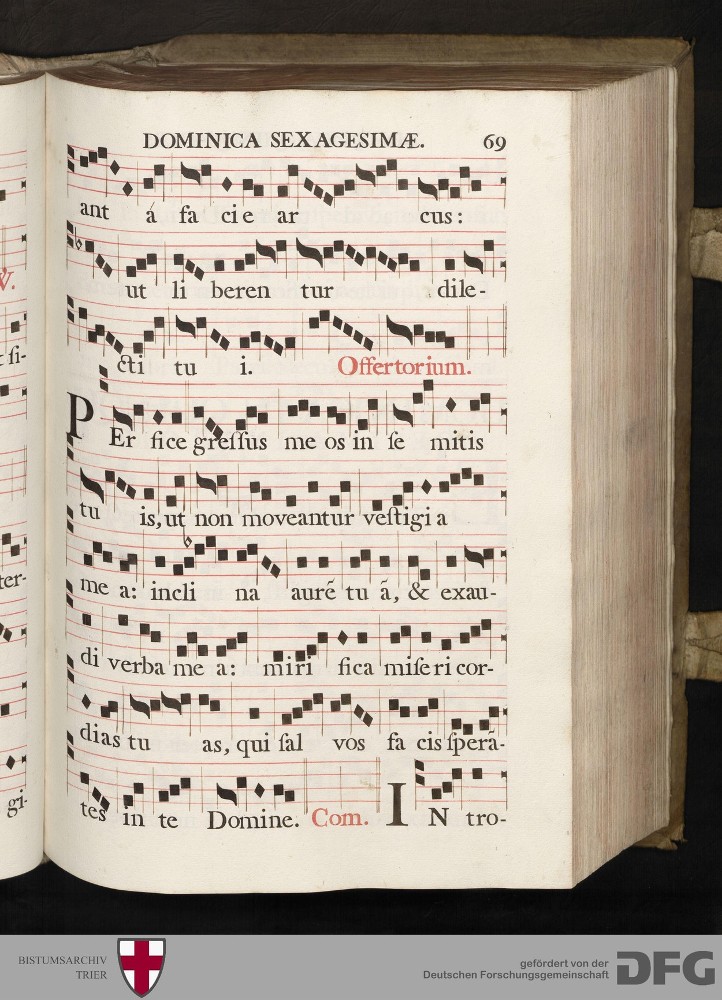 DOMINICA SEXAGESIMÆ. 69
ant á fa ci e ar cus:
ut li beren tur dile-
cti tu i. Offertorium.
PEr fice greſſus me os in ſe mitis
tu is, ut non moveantur veſtigi a
me a: incli na aurē tu ā, & exau-
di verba me a: miri fica miſe ri cor-
dias tu as, qui ſal vos fa cis ſperā-
tes in te Domine. Com. IN tro-
V.
ſi-
ter-
gi-
BISTUMSARCHIV
TRIER
gefördert von der
Deutschen Forschungsgemeinschaft
DFG